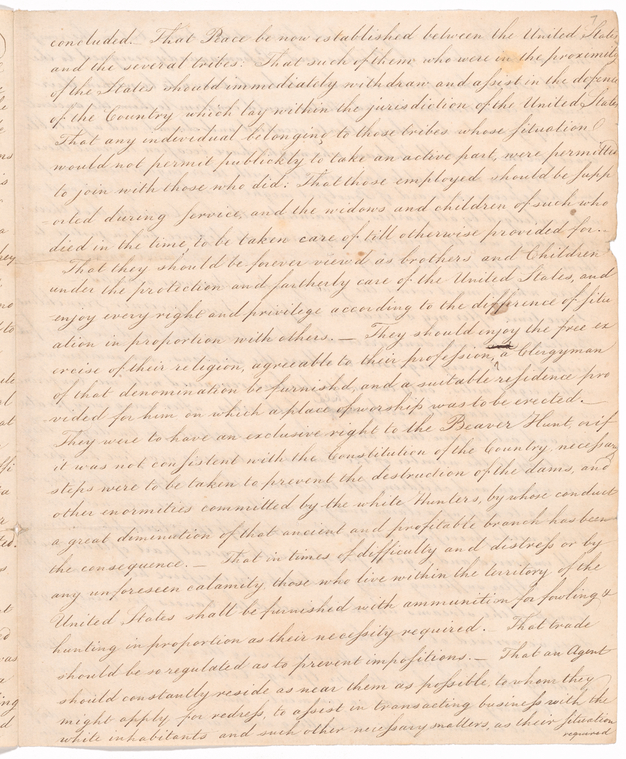 7
concluded. That Peace be now established between the United States
and the several tribes: That such of them who were in the proxemity
of the States should immediately withdraw and assist in the defence
of the Country which lay within the jurisdiction of the United States
That any individual belonging to those tribes whose situation
would not permit publickly to take an active part, were permitted
to join with those who did: That those employed should be supp
orted during service, and the widows and children of such who
died in the time, to be taken care of till otherwise provided for.—
That they should be forever view'd as brothers and Children
under the protection and fartherly care of the United States, and
enjoy every right and privilege according to the difference of situ
ation in proportion with others. — They should enjoy the free ex
ercise of their religion, agreeable to their profession, a Clergyman
of that denomination be furnish'd, and a suitable residence pro
vided for him on which a place of worship was to be erected.—
They were to have an exclusive right to the Beaver Hunt, or if
it was not consistent with the Constitution of the Country, necessary
steps were to be taken to prevent the destruction of the dams, and
other enormities committed by the white Hunters, by whose conduct
a great diminution of that ancient and profitable branch has been
the consequence. — That in times of difficulty and distress or by
any unforeseen calamity, those who live within the territory of the
United States shall be furnished with ammunition for fowling &
hunting in proportion as their necessity required. That trade
should be so regulated as to prevent impositions. — That an Agent
should constantly reside as near them as possible, to whom they
might apply for redress, to assist in transacting business with the
white inhabitants and such other necessary matters, as their situation
required